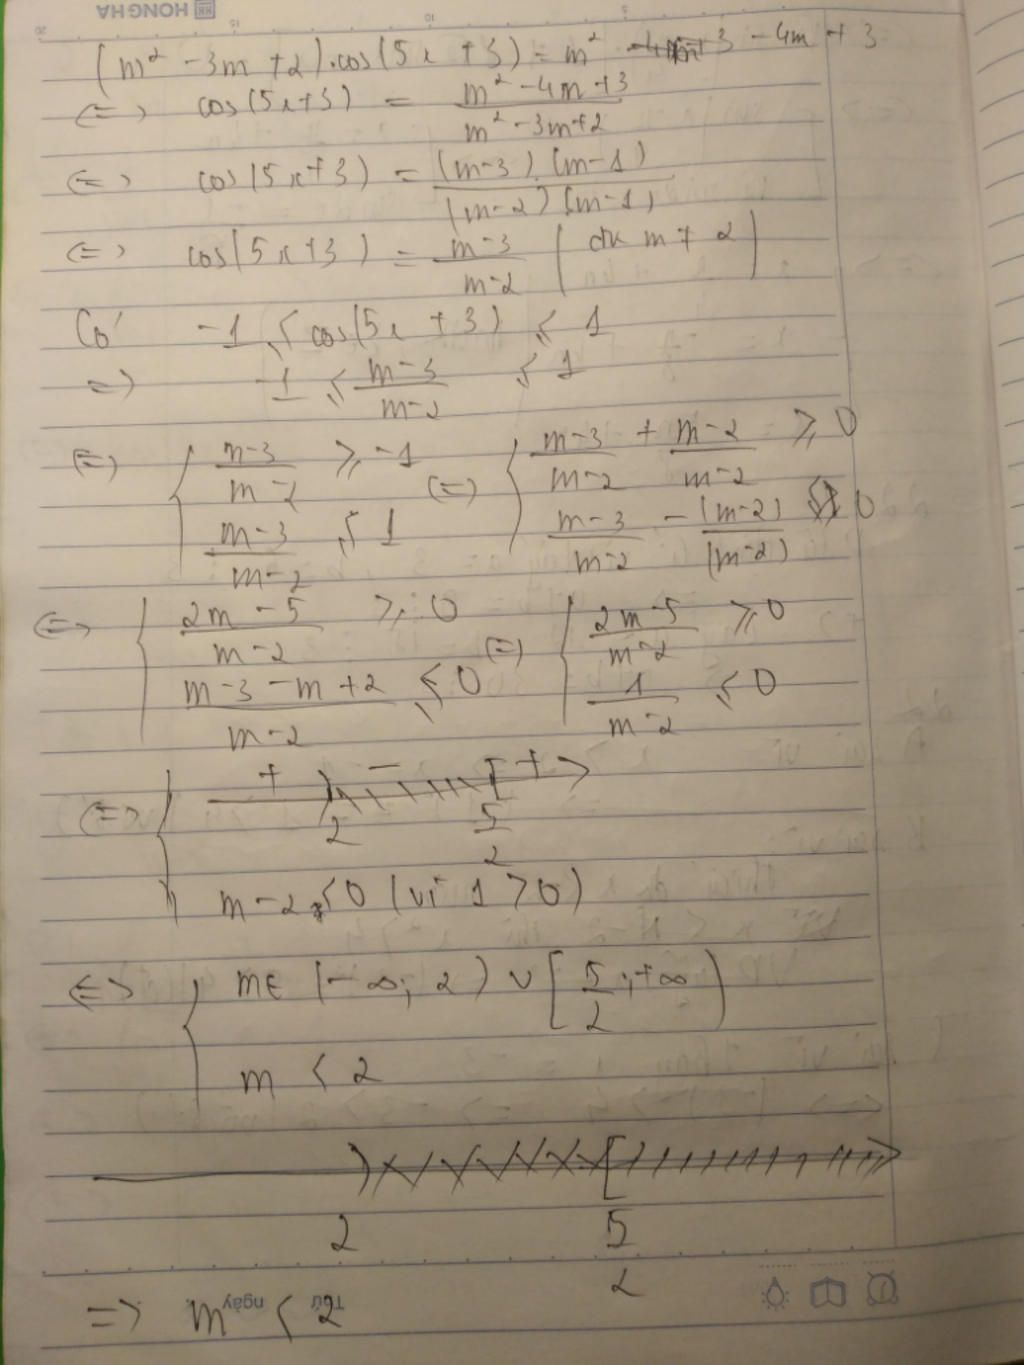 HONG HA
(m² - 3m + 2).cos(5x + 3) = m² - 4m + 3
<=> cos(5x+3) = (m² - 4m + 3)/(m² - 3m + 2)
<=> cos(5x+3) = (m-3).(m-1)/(m-2)(m-1)
<=> cos(5x+3) = (m-3)/(m-2) (đk m ≠ 2)
Có -1 ≤ cos(5x + 3) ≤ 1
=> -1 ≤ (m-3)/(m-2) ≤ 1
<=> { (m-3)/(m-2) ≥ -1 ; (m-3)/(m-2) ≤ 1 <=> { (m-3)/(m-2) + (m-2)/(m-2) ≥ 0 ; (m-3)/(m-2) - (m-2)/(m-2) ≤ 0
<=> { (2m-5)/(m-2) ≥ 0 ; (m-3-m+2)/(m-2) ≤ 0 <=> { (2m-5)/(m-2) ≥ 0 ; 1/(m-2) ≤ 0
<=> { + ) - [ + 2 5/2
m-2 < 0 (vì 1 > 0)
<=> { m ∈ (-∞; 2) ∪ [5/2; +∞)
m < 2
) [
2 5/2
=> m < 2
Thứ ngày